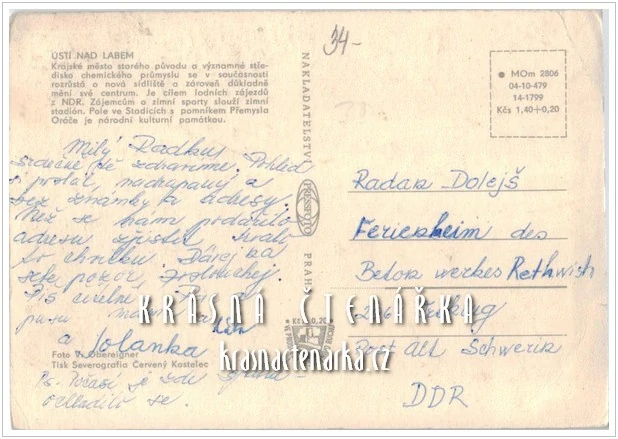 ÚSTÍ NAD LABEM
Krajské město starého původu a významné stře-
disko chemického průmyslu se v současnosti
rozrůstá o nová sídliště a zároveň důkladně
mění své centrum. Je cílem lodních zájezdů
z NDR. Zájemcům o zimní sporty slouží zimní
stadión. Pole ve Stadicích s pomníkem Přemysla
Oráče je národní kulturní památkou.
Milý Radku,
srdečně tě zdravíme. Pohled
si poslal, a
bez známky a adresy.
Než se nám podařilo
adresu zjistit, trvalo
to chvilku. Dávej na
sebe pozor,
Piš
pusu
a Jolanka
Foto V. Obereigner
Tisk Severografia Červený Kostelec
Ps. Počasí je zde
ochladilo se.
34-
NAKLADATELSTVÍ
PRESSFOTO
PRAHA
MOm 2806
04-10-479
14-1799
Kčs 1,40+0,20
Radar Dolejš
Ferienheim des
Beton werkes Rethwisch
Post Alt Schwerin
DDR
KRÁSNÁ ČTENÁŘKA
krasnactenarka.cz